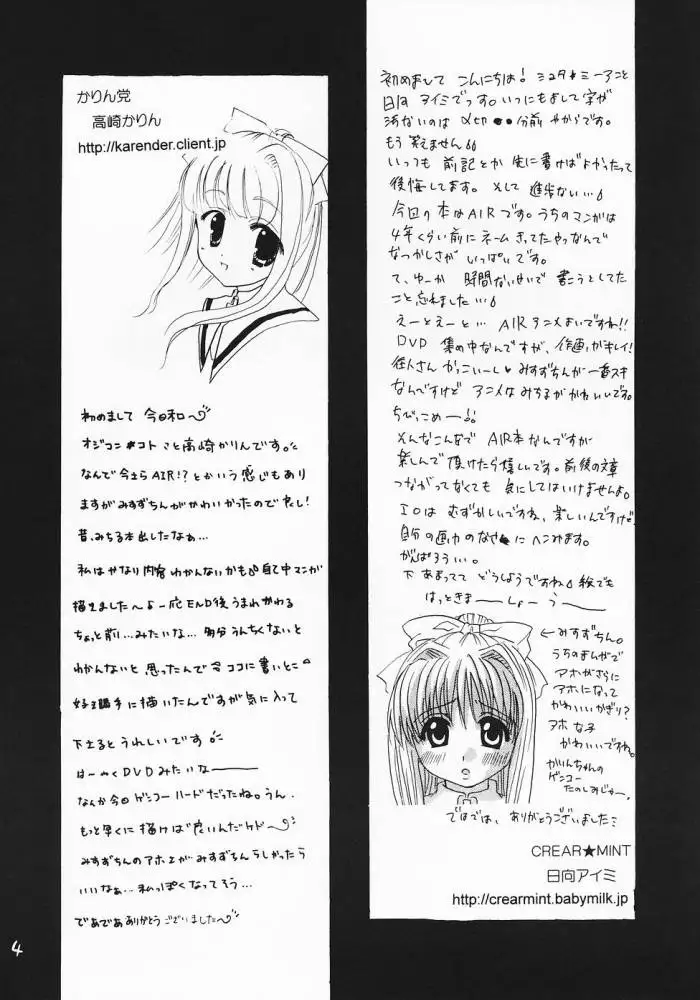 かりん党
高崎かりん
http://karender.client.jp
初めまして 今日和
オジコン*コト さと高崎かりんです。
なんで今さらAIR!?とかいう感じもあり
ますがみすずちんがかわいかったので良し!
昔、みちる本出したなぁ…
私はかなり内容わかんないかも 自己中マンガ
描きました〜 一応END後うまれかわる
ちょっと前…みたいな… 多分うんちくないと
わかんないと思ったんで今ココに書いとこ
好き勝手に描いたんですが気に入って
下さるとうれしいです。
はーやくDVDみたいなー
なんか今回ゲンコーハードだったね。うん。
もっと早くに描けば良いんだケド
みすずちんのアホ上がみすずちんらしかったら
いいなぁ…私っぽくなってそう…
であであ ありがとうございました〜
初めまして こんにちは! ミユタ★ミーアこと
日向 アイミでっす。いつにもまして字が
汚ないのは〆切●●分前 やからです。
もう 笑えません
いっつも 前記とか 先に書けばよかったって
後悔してます。そして 進歩ない…
今回の本はAIRです。うちのマンガは
4年くらい前にネーム きってたやつなんで
なつかしさが いっぱいです。
て、ゆーか 時間ないせいで 書こうとしてた
こと忘れました…
えーとえーと… AIRアニメよいですね!!
DVD 集め中なんですが、作画がキレイ!
往人さん かっこいーし♥みすずちんが一番スキ
なんですけど アニメは みちるがかわいいです。
ちびっこめー!!
そんなこんなで AIR本なんですが
楽しんで 頂けたら嬉しいです。前後の文章
つながってなくても 気にしてはいけませんよ。
エロは むずかしいですね、楽しいんですけど
自分の画力のなさにヘこみます。
がんばろうい…。
下 あまってて どうしようですね 絵でも
はっときまーしょーうー
←みすずちん。
うちのまんがで
アホがさらに
アホになって
かわいいかぎり?
アホな子
かわいいですね。
かりんちゃんの
ゲンコー
たのしみじゃー。
ではでは、ありがとうございました
CREAR★MINT
日向アイミ
http://crearmint.babymilk.jp
4